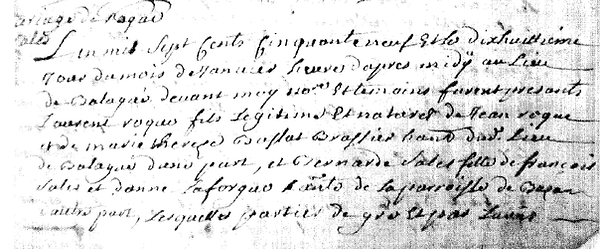 mariage de Roque
Sales
L'an mil sept cents cinquante neuf et le dixhuitième
jour du mois de janvier heures d'apres midy au lieu
de Balagué devant moy no.re et temoins furent presants
Laurent roque fils legitime et naturel de Jean roque
et de marie therese Brassier hant dud. Lieu
de Balague d'une part, et Bernarde Sales fille de françois
Sales et d'anne Laforgue de la parroisse de
d'autre part, Lesquelles parties de gré et pas